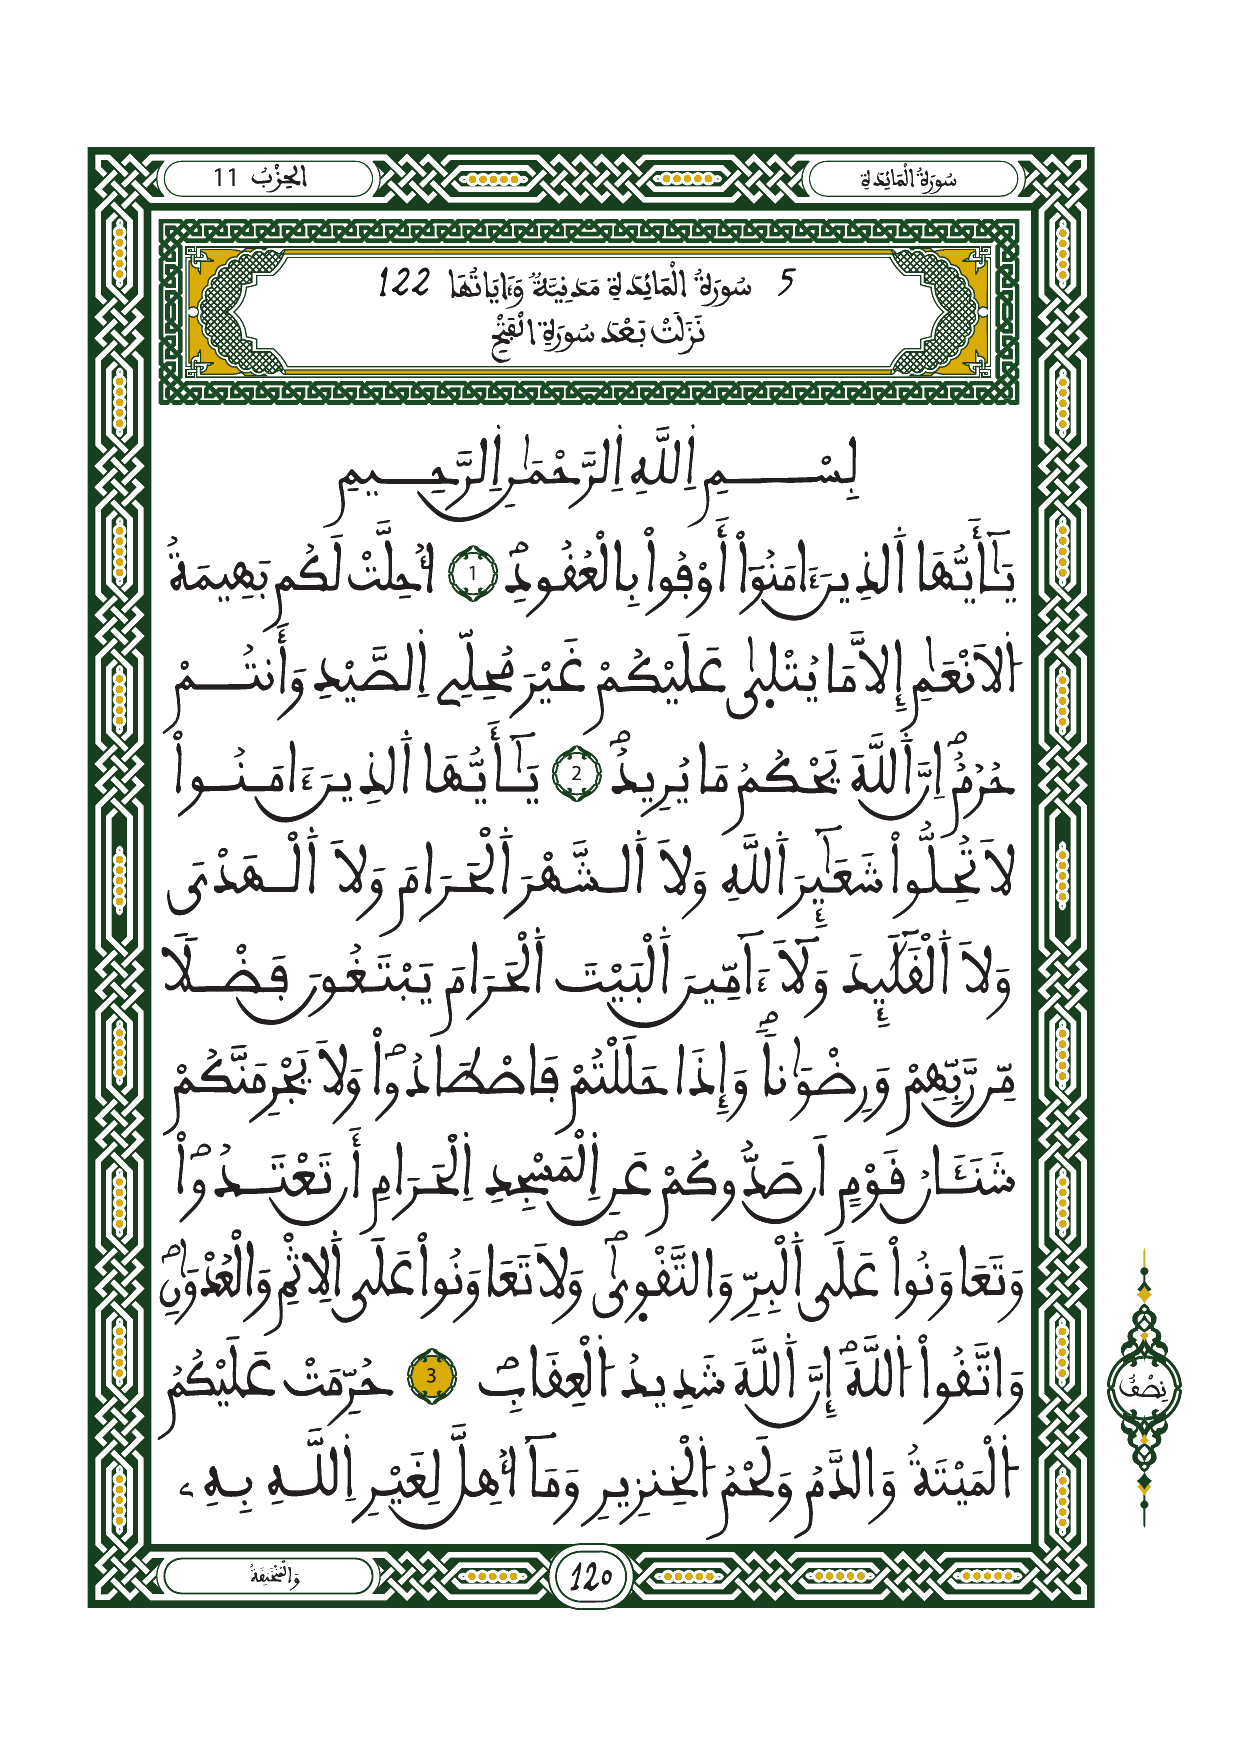 سُورَةُ الْمَائِدَةِ
الْحِزْبُ 11
5 سُورَةُ الْمَائِدَةِ مَدَنِيَّةٌ وَءَايَاتُهَا 122
نَزَلَتْ بَعْدَ سُورَةِ الْفَتْحِ
بِسْمِ اِللَّهِ اِلرَّحْمَٰنِ اِلرَّحِيمِ
يَٰٓأَيُّهَا اَلذِينَ ءَامَنُوٓاْ أَوْفُواْ بِالْعُقُودِۖ 1 ا۟حِلَّتْ لَكُم بَهِيمَةُ
اُ۬لَانْعَٰمِ إِلَّا مَا يُتْلَىٰ عَلَيْكُمْ غَيْرَ مُحِلِّے اِلصَّيْدِ وَأَنتُمْ
حُرُمٌۖ اِنَّ اَللَّهَ يَحْكُمُ مَا يُرِيدُۖ 2 يَٰٓأَيُّهَا اَلذِينَ ءَامَنُواْ
لَا تُحِلُّواْ شَعَٰٓئِرَ اَللَّهِ وَلَا اَلشَّهْرَ اَلْحَرَامَ وَلَا اَلْهَدْىَ
وَلَا اَلْقَلَٰٓئِدَ وَلَآ ءَآمِّينَ اَلْبَيْتَ اَلْحَرَامَ يَبْتَغُونَ فَضْلًا
مِّن رَّبِّهِمْ وَرِضْوَٰناًۖ وَإِذَا حَلَلْتُمْ فَاصْطَادُواْۖ وَلَا يَجْرِمَنَّكُمْ
شَنَـَٔانُ قَوْمٍ اَن صَدُّوكُمْ عَنِ اِلْمَسْجِدِ اِلْحَرَامِ أَن تَعْتَدُواْۖ
وَتَعَاوَنُواْ عَلَى اَلْبِرِّ وَالتَّقْوَىٰۖ وَلَا تَعَاوَنُواْ عَلَى اَلِاثْمِ وَالْعُدْوَٰنِۖ
وَاتَّقُواْ اُ۬للَّهَۖ إِنَّ اَللَّهَ شَدِيدُ اُ۬لْعِقَابِۖ 3 حُرِّمَتْ عَلَيْكُمُ
اُ۬لْمَيْتَةُ وَالدَّمُ وَلَحْمُ اُ۬لْخِنزِيرِ وَمَآ أُهِلَّ لِغَيْرِ اِللَّهِ بِهِۦ
نِصْفُ
وَالْمُنْخَنِقَةُ
120